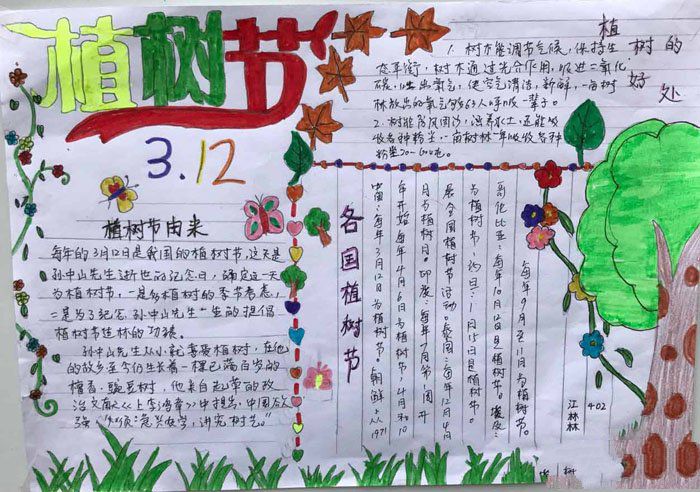 植树节
3.12
植树节由来
每年的3月12日是我国的植树节,这天是
孙中山先生逝世的纪念日,确定这一天
为植树节,一是为植树的季节考虑,
二是为了纪念孙中山先生一生的提倡
植树节造林的功绩。
孙中山先生从小就喜爱植树,在他
的故乡至今仍生长着一棵已满百岁的
檀香
豌豆树,他亲自起草的政
治文献《上李鸿章》中提出,中国欲
强
急兴农学,讲究树艺。”
植树的好处
1.树木能调节气候,保持生
态平衡,树木通过光合作用,吸进二氧化
碳,吐出氧气,使空气清洁,新鲜,一亩树
林放出的氧气够65人呼吸一辈子。
2.树能防风固沙,涵养水土,还能吸
收各种粉尘,一亩树林一年吸收各种
粉尘20~60吨。
各国植树节
中国:每年3月12日为植树节。朝鲜:从1971
年开始每年4月6日为植树节,4月和10
月为植树月。印度:每年7月第一周开
展全国植树节活动。泰国:每年12月4日
为植树节。约旦:1月15日是植树节。
哥伦比亚:每年10月12日是植树节。
每年9月至11月为植树节。
402
江林林